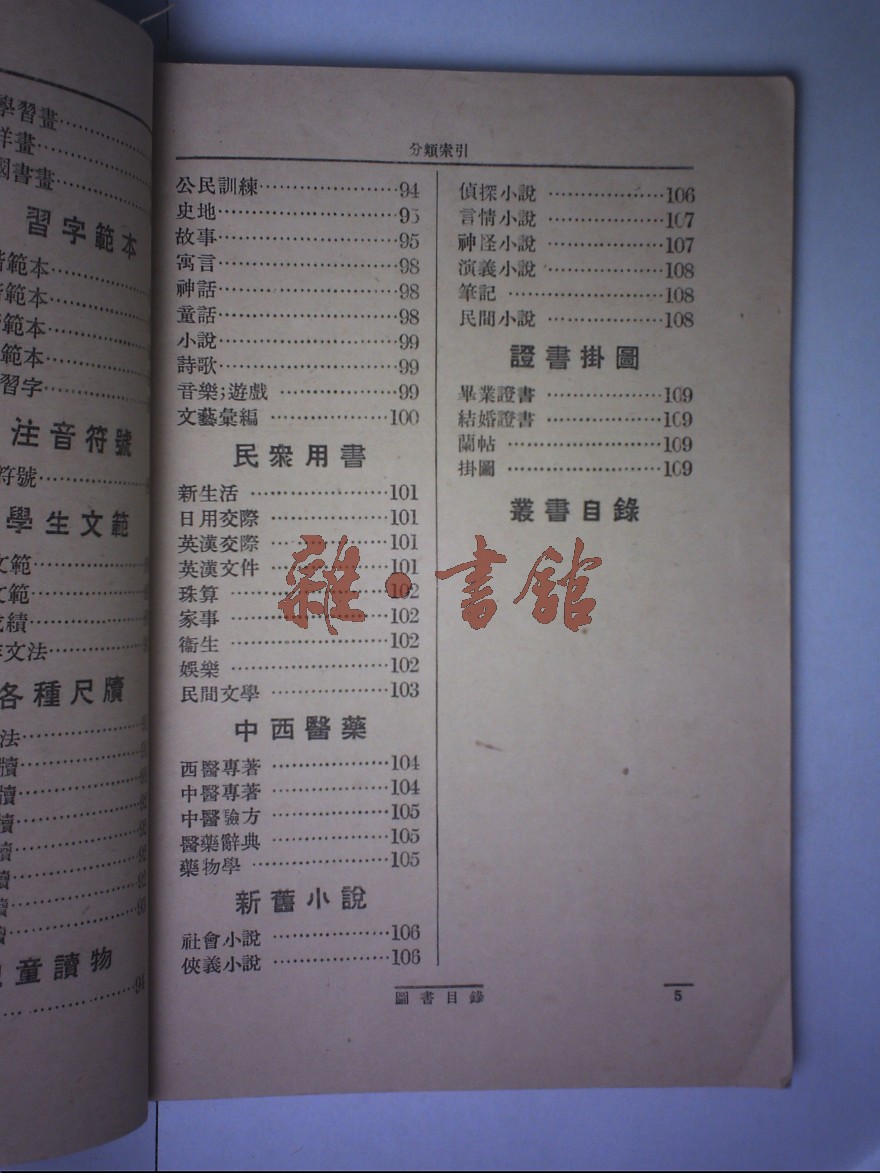 學習畫
洋畫
國書畫
習字範本
範本
範本
範本
範本
習字
注音符號
符號
學生文範
文範
文範
成績
作文法
各種尺牘
法
牘
牘
牘
牘
牘
牘
童讀物
94
分類索引
公民訓練……94
史地……95
故事……95
寓言……98
神話……98
童話……98
小說……99
詩歌……99
音樂;遊戲……99
文藝彙編……100
民衆用書
新生活……101
日用交際……101
英漢交際……101
英漢文件……101
珠算……102
家事……102
衞生……102
娛樂……102
民間文學……103
中西醫藥
西醫專著……104
中醫專著……104
中醫驗方……105
醫藥辭典……105
藥物學……105
新舊小說
社會小說……106
俠義小說……106
偵探小說……106
言情小說……107
神怪小說……107
演義小說……108
筆記……108
民間小說……108
證書掛圖
畢業證書……109
結婚證書……109
蘭帖……109
掛圖……109
叢書目錄
雜·書館
圖書目錄
5